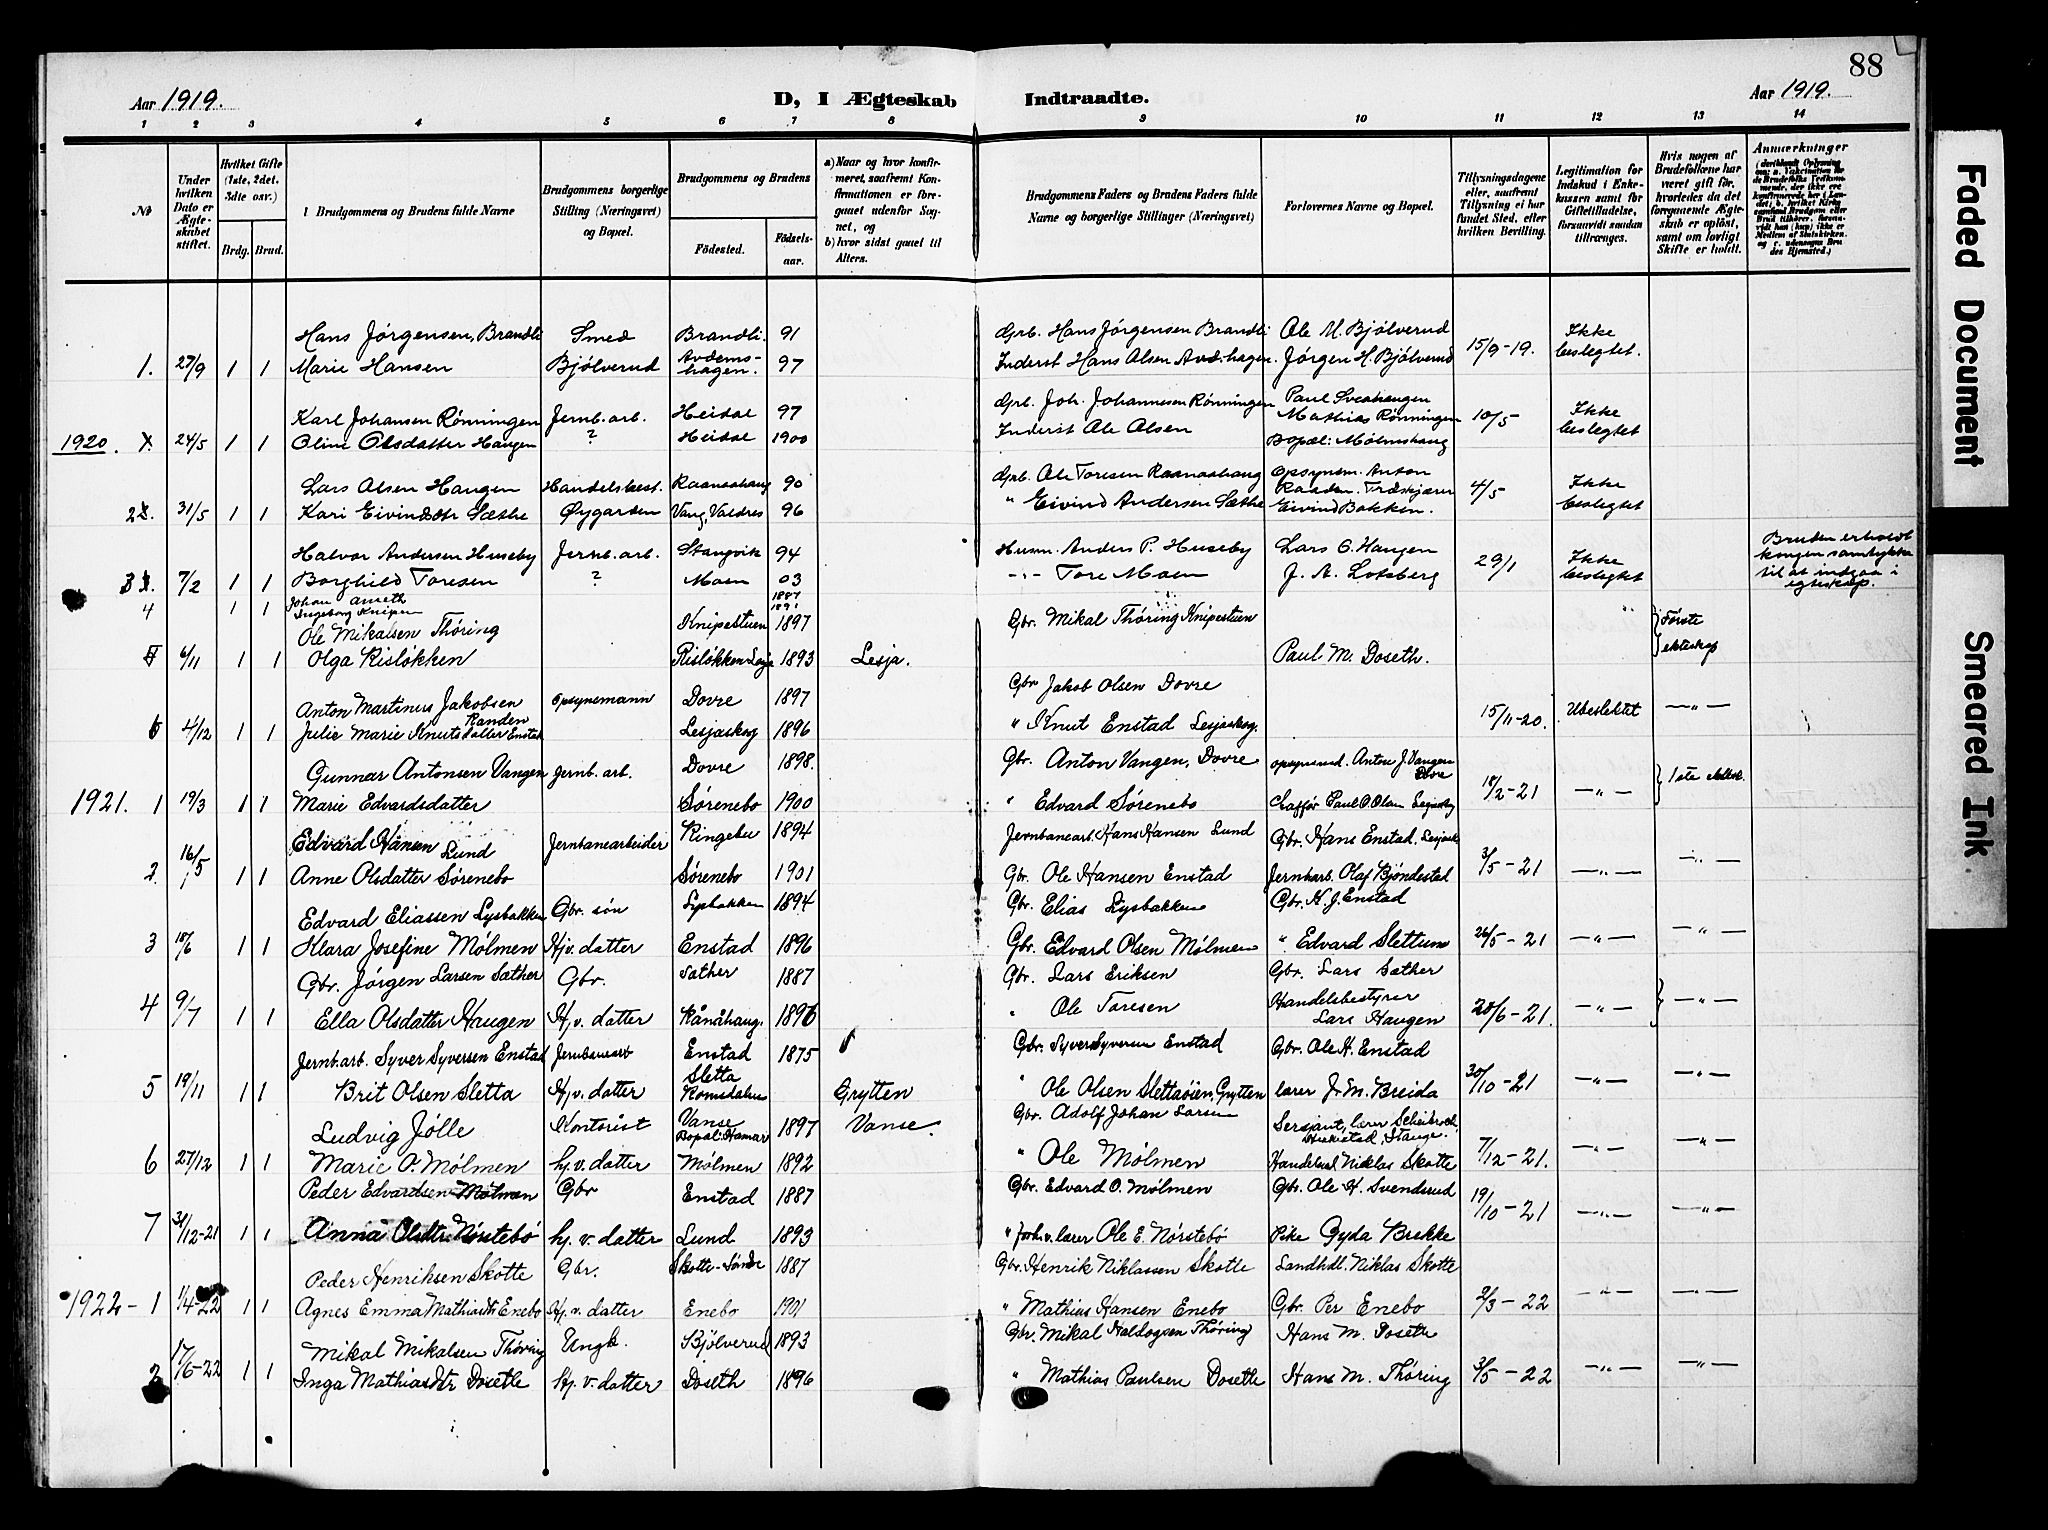 88
Aar 1919.
D, I Ægteskab Indtraadte.
Aar 1919.
1 2 3 4 5 6 7 8 9 10 11 12 13 14
No
Under hvilken Dato er Ægteskabet stiftet.
Hvilket Gifte (1ste, 2det, 3dte osv.)
Brdg. Brud.
Brudgommens og Brudens fulde Navne
Brudgommens borgerlige Stilling (Næringsvei) og Bopæl.
Brudgommens og Brudens
Födested. Födselsaar.
a) Naar og hvor konfirmeret, saafremt Konfirmationen er foregaaet udenfor Sognet, og
b) hvor sidst gaaet til Alters.
Brudgommens Faders og Brudens Faders fulde Navne og borgerlige Stillinger (Næringsvei)
Forlovernes Navne og Bopæl.
Tillysningsdagene eller, saafremt Tillysning ei har fundet Sted, efter hvilken Bevilling.
Legitimation for Indskud i Enkekassen samt for Giftetilladelse, forsaavidt saadan tiltrænges.
Hvis nogen af Brudefolkene har været gift før, hvorledes da det foregaaende Ægteskab er opløst, samt om lovligt Skifte er holdt.
Anmærkninger
Hans Jørgensen, Brandli Smed Brandli. 91 Grb. Hans Jørgensen Brandli Ole M. Bjølverud Ikke
1. 27/9 1 1 Marie Hansen Bjølverud Avdemshagen. 97 Inderst Hans Olsen Avd.hagen. Jørgen H. Bjølverud 15/9-19. beslegtet.
Karl Johansen Rønningen Jernb. arb. Heidal 97 Grb. Joh. Johannesen Rønningen Paul Sveahaugen Ikke
Mathias Rønningen 10/5
1920. 1. 24/5 1 1 Oline Olsdatter Haugen ? Heidal 1900 Inderst Ole Olsen Bopæl: Mølmshaug beslegtet
Lars Olsen Haugen Handelsbest. Raanaahaug 90 Grb. Ole Toresen Raanaahaug Opsynsm. Anton Ikke
Raaden. Træskjærer 4/5
2. 31/5 1 1 Kari Eivindsdtr Sæthe Øygarden Vang, Valdres 96 " Eivind Andersen Sæthe Eivind Bakken. beslegtet
Halvor Andersen Huseby Jernb. arb. Stangvik 94 Husm. Anders P. Huseby Lars O. Haugen Ikke Bruden erholdt
3 7/2 1 1 Borghild Toresen ? Moen 03 -"- Tore Moen J. A. Lotsberg 29/1 beslegtet kongen samtykke til at indgaa i egteskap.
4 1 1 Johan Amseth 1887
Ingeborg Knipen 1891
Ole Mikalsen Thøring Knipestuen 1897 Gbr. Mikal Thøring Knipestuen Første
5 6/11 1 1 Olga Risløkken Risløkken Lesja 1893 Lesja. Paul M. Doseth. ekteskap
Anton Martinus Jakobsen Randen opsynsmann Dovre 1897 Gbr Jakob Olsen Dovre
6 4/12 1 1 Julie Marie Knutsdatter Enstad Lesjaskog 1896 " Knut Enstad Lesjaskog. 15/11-20. Ubeslektet —"—
Gunnar Antonsen Vangen Jernb. arb. Dovre 1898. Gbr. Anton Vangen, Dovre opsynsmd. Anton J. Vangen Dovre
1921. 1 19/3 1 1 Marie Edvardsdatter Sørenebo 1900 " Edvard Sørenebo Chaffør Paul O Olsen Lesjaskog 18/2-21 —"— 1ste ektsk.
Edvard Hansen Lund Jernbanearbeider Ringebu 1894 Jernbanearb. Hans Hansen Lund Gbr. Hans Enstad. Lesjask
2. 16/5 1 1 Anne Olsdatter Sørenebo Sørenebo 1901 Gbr. Ole Hansen Enstad Jernb.arb. Olaf Bjøndestad 3/5-21 —"— —"—
Edvard Eliassen Lysbakken Gbr. søn Lysbakken 1894 Gbr. Elias Lysbakken Gbr. K. J. Enstad
3 18/6 1 1 Klara Josefine Mølmen Hjv. datter Enstad 1896 Gbr. Edvard Olsen Mølmen " Edvard Slettum 26/5-21 —"— —"—
Gbr. Jørgen Larsen Sæther Gbr. Sæther 1887 Gbr. Lars Eriksen Gbr. Lars Sæther
4 9/7 1 1 Ella Olsdatter Haugen Hj. v. datter Rånåhaug. 1896 " Ole Toresen Handelsbestyrer Lars Haugen 20/6-21. —"— —"—
Jernb. arb. Syver Syversen Enstad Jernbanearb Enstad 1875 Gbr. Syver Syversen Enstad Gbr. Ole H. Enstad
5 19/11 1 1 Brit Olsen Sletta Hj. v. datter Sletta Romsdalen Grytten " Ole Olsen Slettaøien, Grytten lærer Jr. M. Breida 30/10-21 —"— —"—
Ludvig Jølle Kontorist Vanse Bopal: Hamar 1897 Vanse. Gbr. Adolf Johan Larsen Sersjant, lærer
6 27/12 1 1 Marie O. Mølmen hj. v. datter Mølmen 1892 " Ole Mølmen Handelsmd Niklas Skotte 7/12-21. —"— —"—
Peder Edvardsen Mølmen Gbr Enstad 1887 Gbr. Edvard O. Mølmen Gbr. Ole H. Svendsrud
7 31/12-21 1 1 Anna Olsdtr Nørstebø hj. v. datter Lund 1893 " forhv. lærer Ole E. Nørstebø Pike Gyda Brekke 19/10-21 —"— —"—
Peder Henriksen Skotte Gbr. Skotte-Søndre 1887 Gbr. Henrik Niklassen Skotte Landhdl. Niklas Skotte
1922-1 1/4-22 1 1 Agnes Emma Mathiasdtr Enebo Hj. v. datter Enebo 1901 " Mathias Hansen Enebo Gbr. Per Enebo 2/3-22 —"— —"—
Mikal Mikalsen Thøring Ungk. Bjølverud 1893 Gbr. Mikal Haldogsen Thøring Hans M. Doseth
2 17/6-22 1 1 Inga Mathiasdtr Doseth Hj. v. datter Doseth 1896 " Mathias Paulsen Doseth Hans M. Thøring 3/5-22 —"— —"—
Faded Document
Smeared Ink